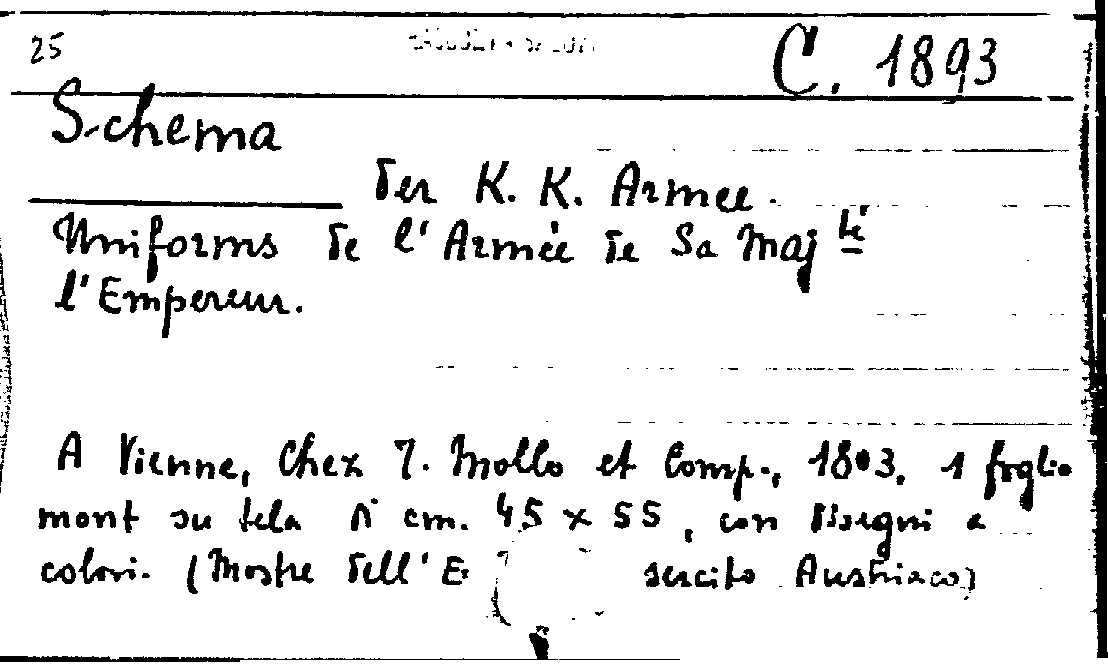 25
C. 1893
Schema
der K. K. Armee.
Uniforms de l'Armée de Sa Maj té
l'Empereur.
A Vienne, chez J. Mollo et Comp., 1803. 1 foglio
mont su tela di cm. 45 x 55, con disegni a
colori. (Mostre dell'E sercito Austriaco)